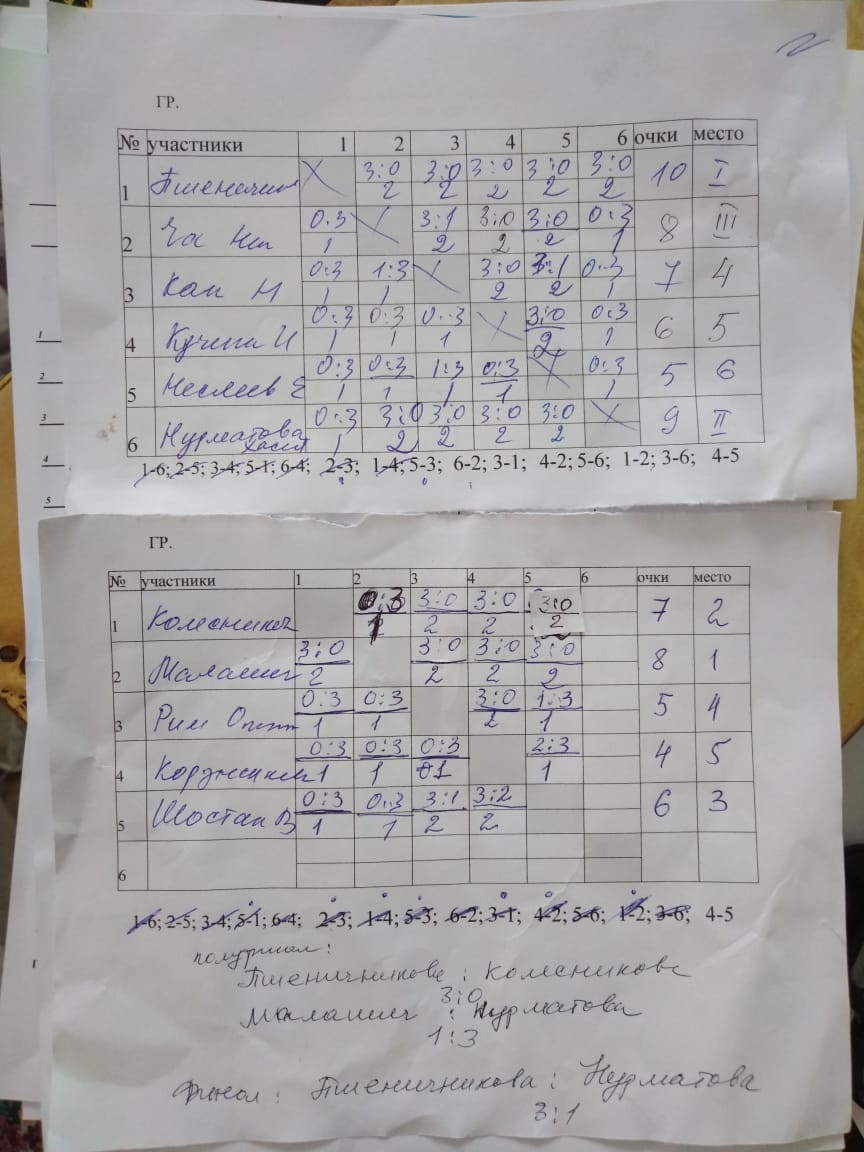 ГР.
№ участники 1 2 3 4 5 6 очки место
1 Пшеничник X 3:0 3:0 3:0 3:0 3:0 10 I
2 2 2 2 2
2 0:3 X 3:1 3:0 3:0 0:3 8 III
1 2 2 2 1
3 Кан Н 0:3 1:3 X 3:0 3:1 0:3 7 4
1 1 2 2 1
4 Кучени И 0:3 0:3 0:3 X 3:0 0:3 6 5
1 1 1 2 1
5 Неслеев Е 0:3 0:3 1:3 0:3 X 0:3 5 6
1 1 1 1 1
6 Нурматова 0:3 3:0 3:0 3:0 3:0 X 9 II
1 2 2 2 2
1-6; 2-5; 3-4; 5-1; 6-4; 2-3; 1-4; 5-3; 6-2; 3-1; 4-2; 5-6; 1-2; 3-6; 4-5
ГР.
№ участники 1 2 3 4 5 6 очки место
1 Колесников 0:3 3:0 3:0 3:0 7 2
1 2 2 2
2 Малашич 3:0 3:0 3:0 3:0 8 1
2 2 2 2
3 Рим 0:3 0:3 3:0 1:3 5 4
1 1 2 1
4 0:3 0:3 0:3 2:3 4 5
1 1 1 1
5 Шостак В 0:3 0:3 3:1 3:2 6 3
1 1 2 2
6
1-6; 2-5; 3-4; 5-1; 6-4; 2-3; 1-4; 5-3; 6-2; 3-1; 4-2; 5-6; 1-2; 3-6; 4-5
полуфинал:
Пшеничникова : Колесникова
3:0
Малашич : Нурматова
1:3
Финал: Пшеничникова : Нурматова
3:1